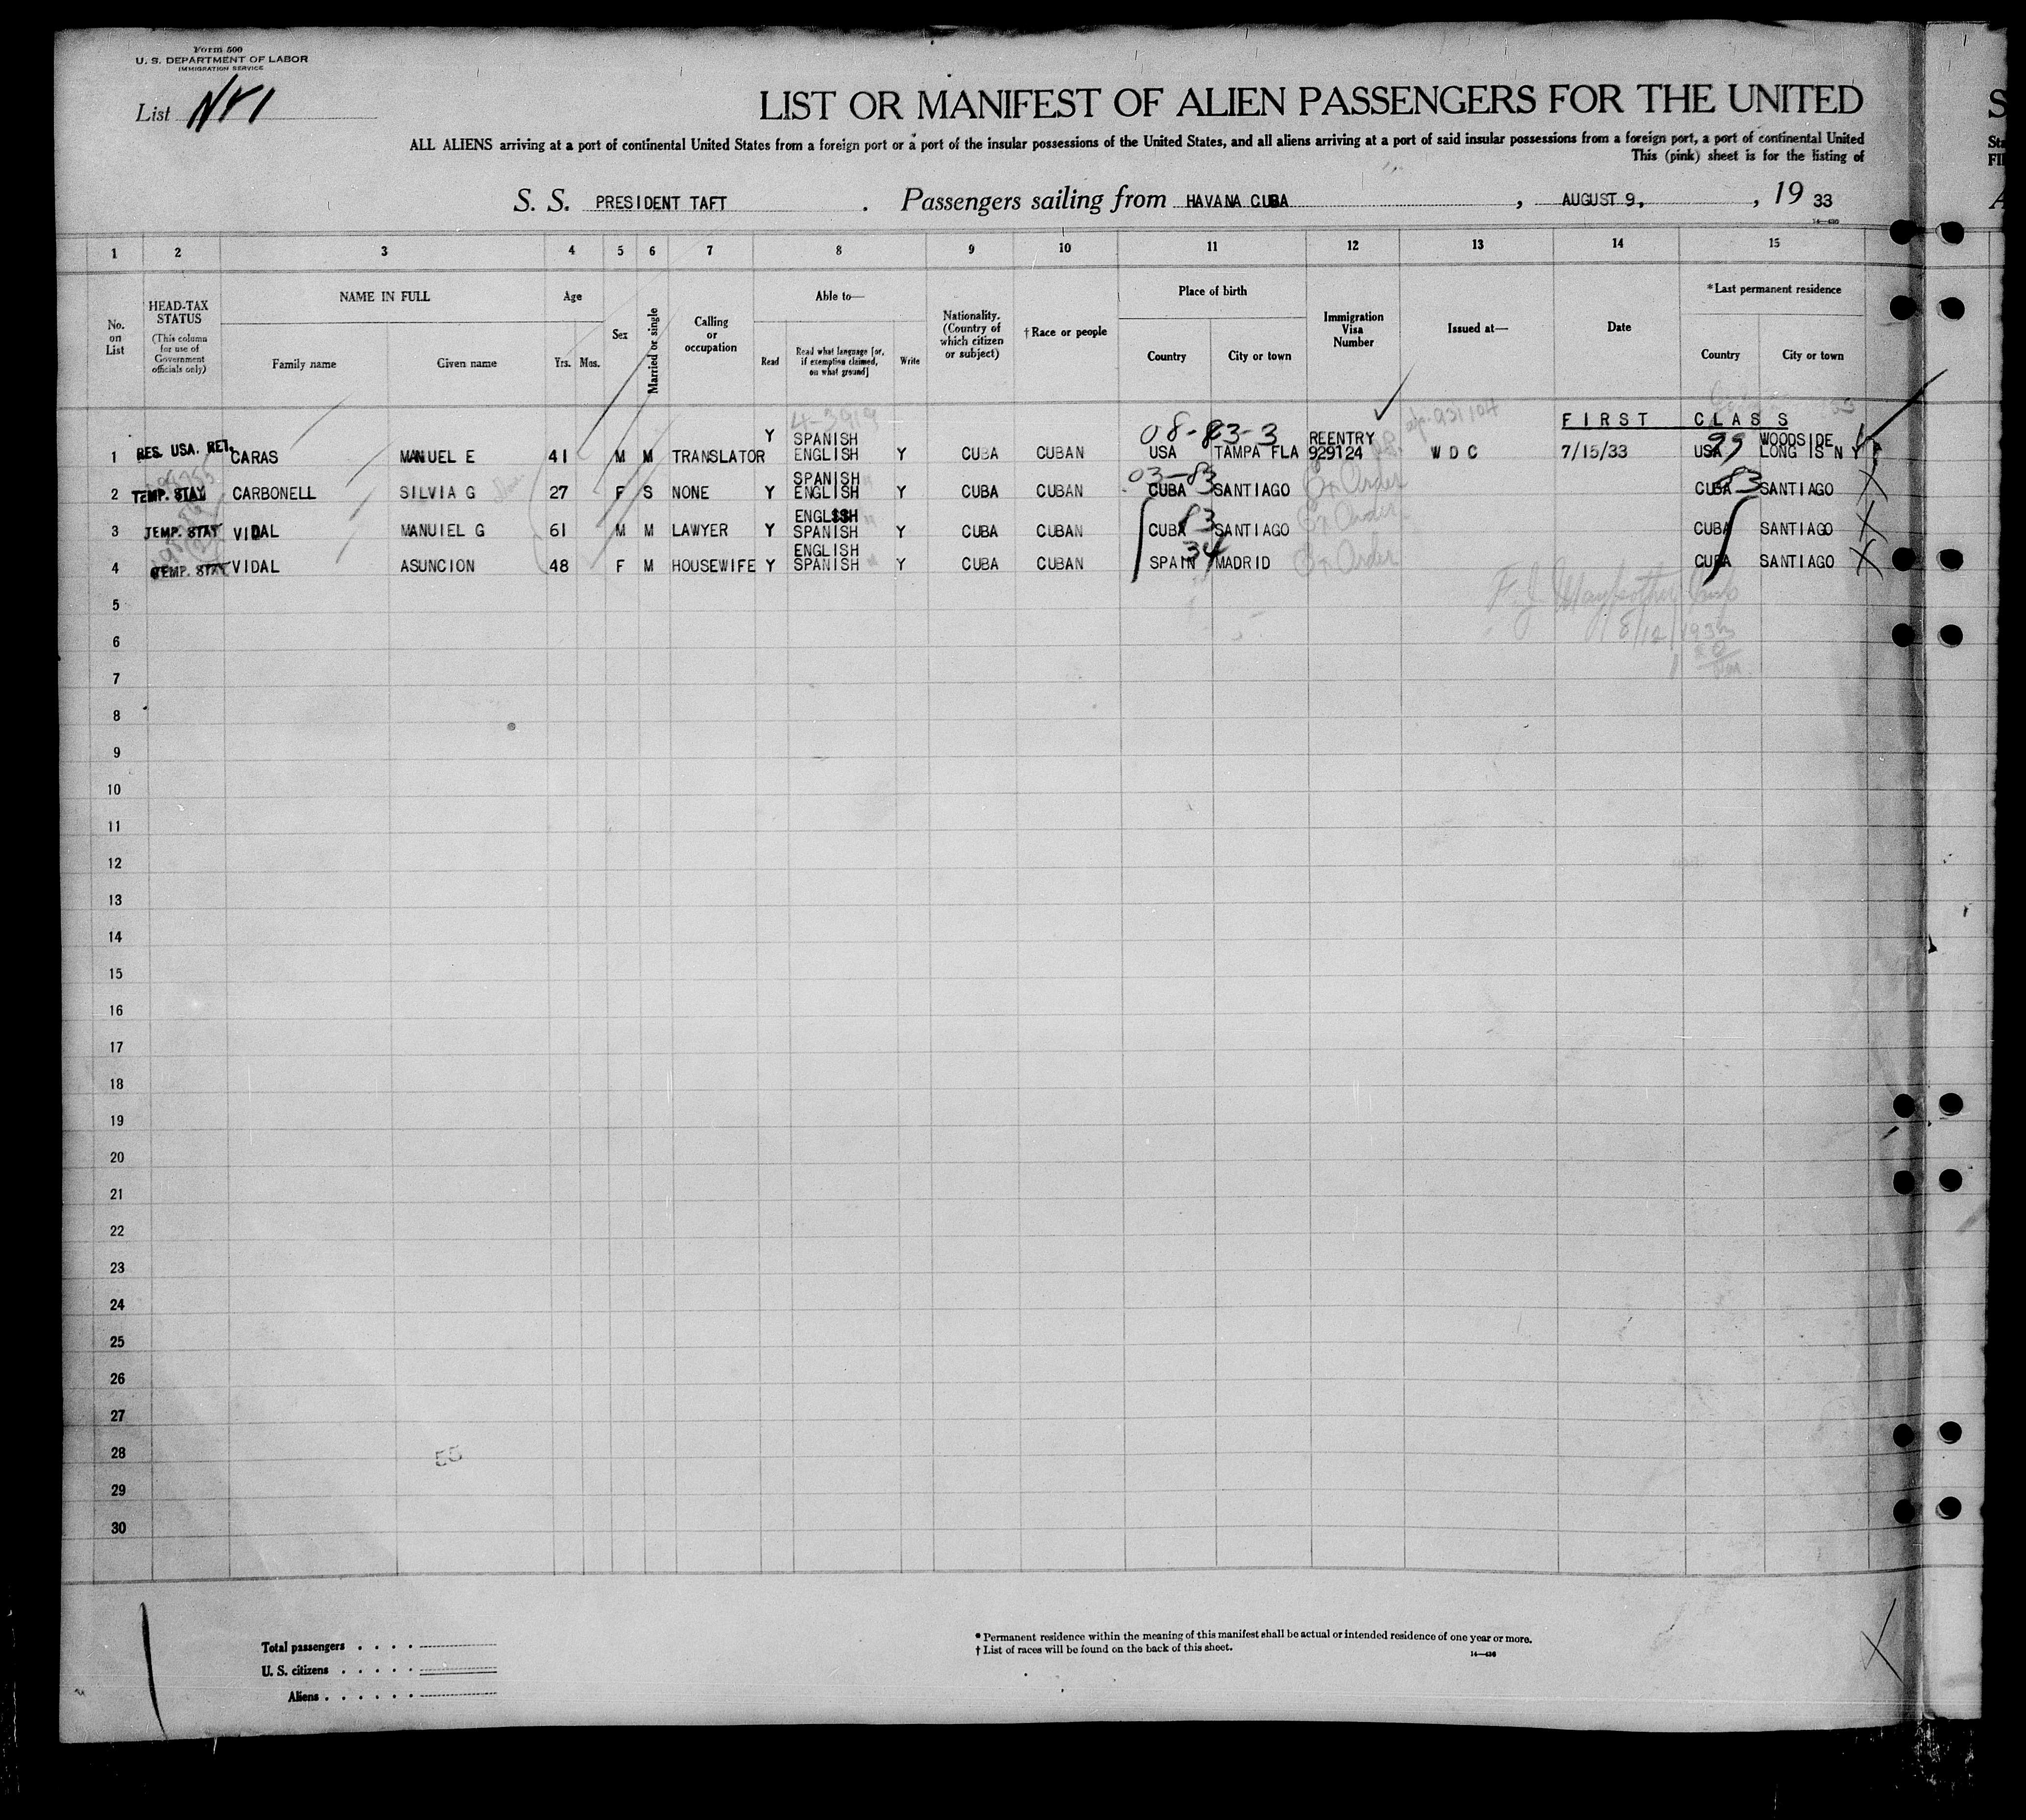 Form 500
U. S. DEPARTMENT OF LABOR
IMMIGRATION SERVICE
List
LIST OR MANIFEST OF ALIEN PASSENGERS FOR THE UNITED
ALL ALIENS arriving at a port of continental United States from a foreign port or a port of the insular possessions of the United States, and all aliens arriving at a port of said insular possessions from a foreign port, a port of continental United
This (pink) sheet is for the listing of
S. S. PRESIDENT TAFT . Passengers sailing from HAVANA CUBA , AUGUST 9, , 19 33
14—436
1 2 3 4 5 6 7 8 9 10 11 12 13 14 15
No. on List
HEAD-TAX STATUS (This column for use of Government officials only)
NAME IN FULL
Family name Given name
Age
Yrs. Mos.
Sex
Married or single
Calling or occupation
Able to—
Read
Read what language [or, if exemption claimed, on what ground]
Write
Nationality. (Country of which citizen or subject)
†Race or people
Place of birth
Country City or town
Immigration Visa Number
Issued at—
Date
*Last permanent residence
Country City or town
FIRST CLASS
1 RES. USA. RET. CARAS MANUEL E 41 M M TRANSLATOR Y SPANISH ENGLISH Y CUBA CUBAN 08-83-3 USA TAMPA FLA REENTRY 929124 W D C 7/15/33 USA 99 WOODSIDE LONG IS N Y
2 TEMP. STAY CARBONELL SILVIA G 27 F S NONE Y SPANISH ENGLISH Y CUBA CUBAN 03-83 CUBA SANTIAGO Ex Order CUBA 83 SANTIAGO X
3 TEMP. STAY VIDAL MANUIEL G 61 M M LAWYER Y ENGLISH SPANISH Y CUBA CUBAN CUBA 83 SANTIAGO Ex Order CUBA SANTIAGO X
4 TEMP. STAY VIDAL ASUNCION 48 F M HOUSEWIFE Y ENGLISH SPANISH Y CUBA CUBAN SPAIN 34 MADRID Ex Order CUBA SANTIAGO X
5
6
7
8
9
10
11
12
13
14
15
16
17
18
19
20
21
22
23
24
25
26
27
28 55
29
30
Total passengers . . . .
U. S. citizens . . . . .
Aliens . . . . . .
* Permanent residence within the meaning of this manifest shall be actual or intended residence of one year or more.
† List of races will be found on the back of this sheet.
14—436